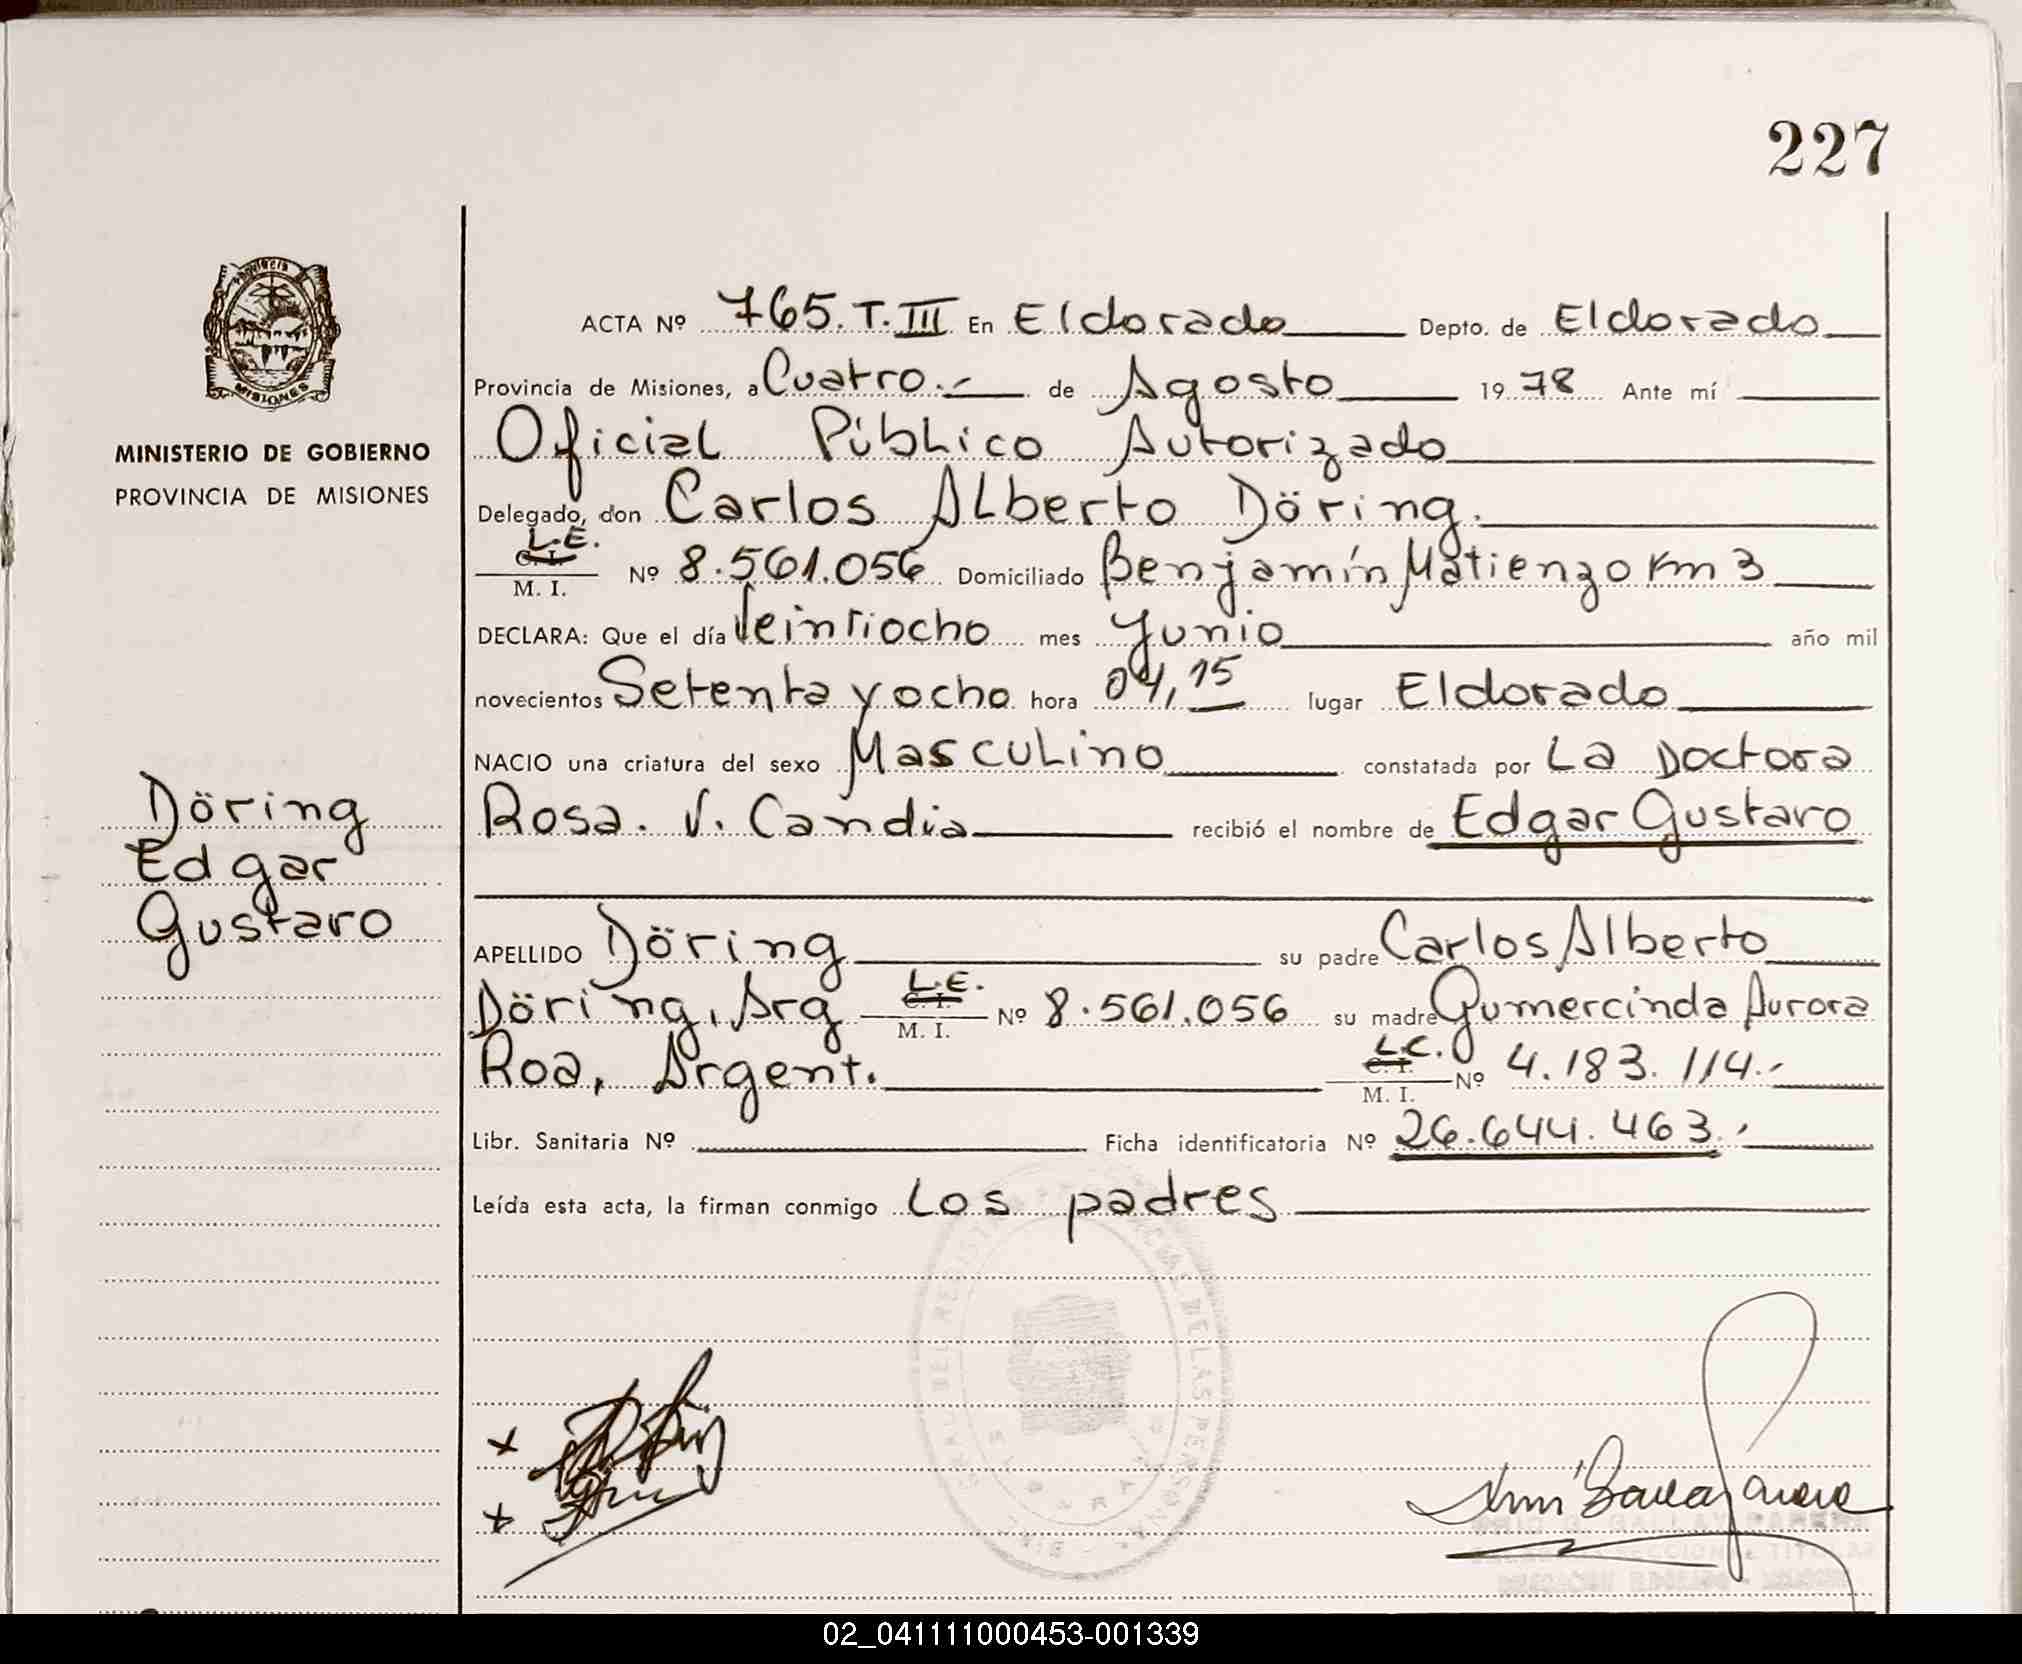 227
Provincia
MISIONES
MINISTERIO DE GOBIERNO
PROVINCIA DE MISIONES
Döring
Edgar
Gustavo
ACTA Nº 765. T. III En Eldorado Depto. de Eldorado
Provincia de Misiones, a Cuatro.- de Agosto 1978 Ante mí
Oficial Público Autorizado
Delegado, don Carlos Alberto Döring.
L.E.
C. I.
M. I. Nº 8.561.056 Domiciliado Benjamín Matienzo Km 3
DECLARA: Que el día Veintiocho mes Junio año mil
novecientos Setenta y ocho hora 04,15 lugar Eldorado
NACIO una criatura del sexo Masculino constatada por La Doctora
Rosa. V. Candia recibió el nombre de Edgar Gustavo
APELLIDO Döring su padre Carlos Alberto
Döring, Arg L.E. C. I. M. I. Nº 8.561.056 su madre Gumercinda Aurora
Roa, Argent. L.C. C. I. M. I. Nº 4.183.114.-
Libr. Sanitaria Nº Ficha identificatoria Nº 26.644.463.-
Leída esta acta, la firman conmigo Los padres
02_041111000453-001339